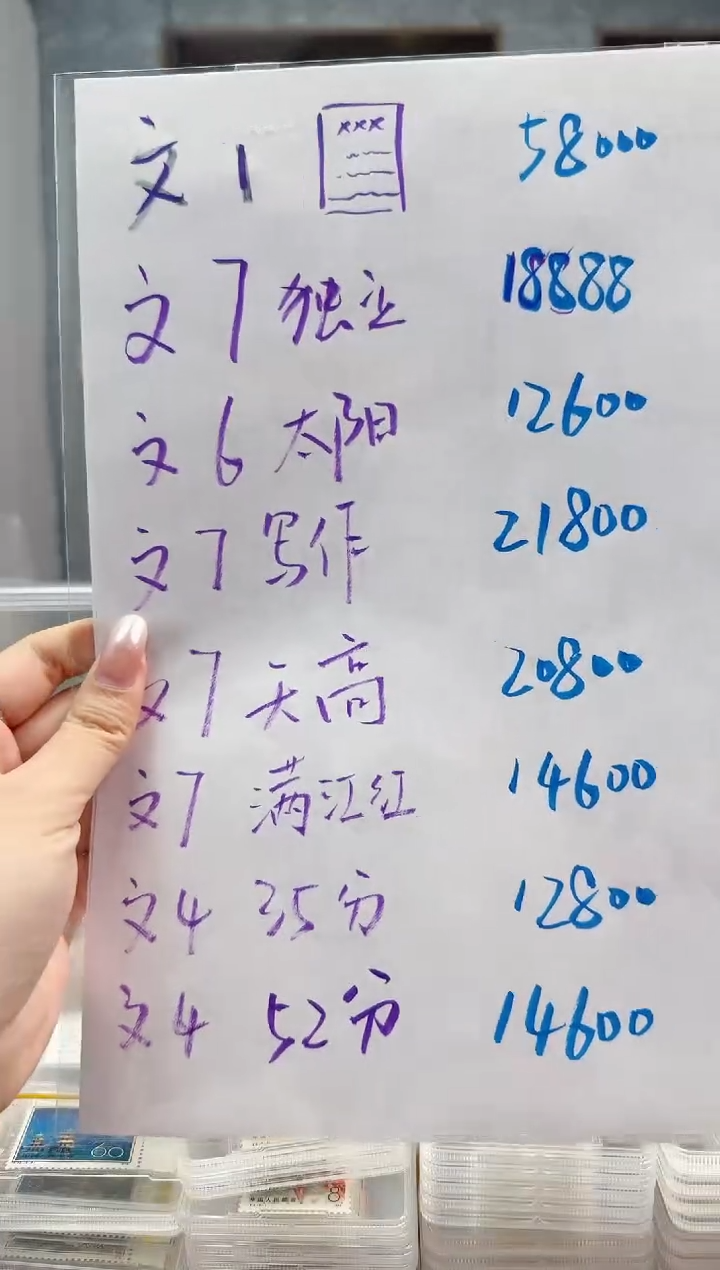 文1 xxx 58000
文7 独立 18888
文6 太阳 12600
文7 写作 21800
文7 天高 20800
文7 满江红 14600
文4 35分 12800
文4 52分 14600
60